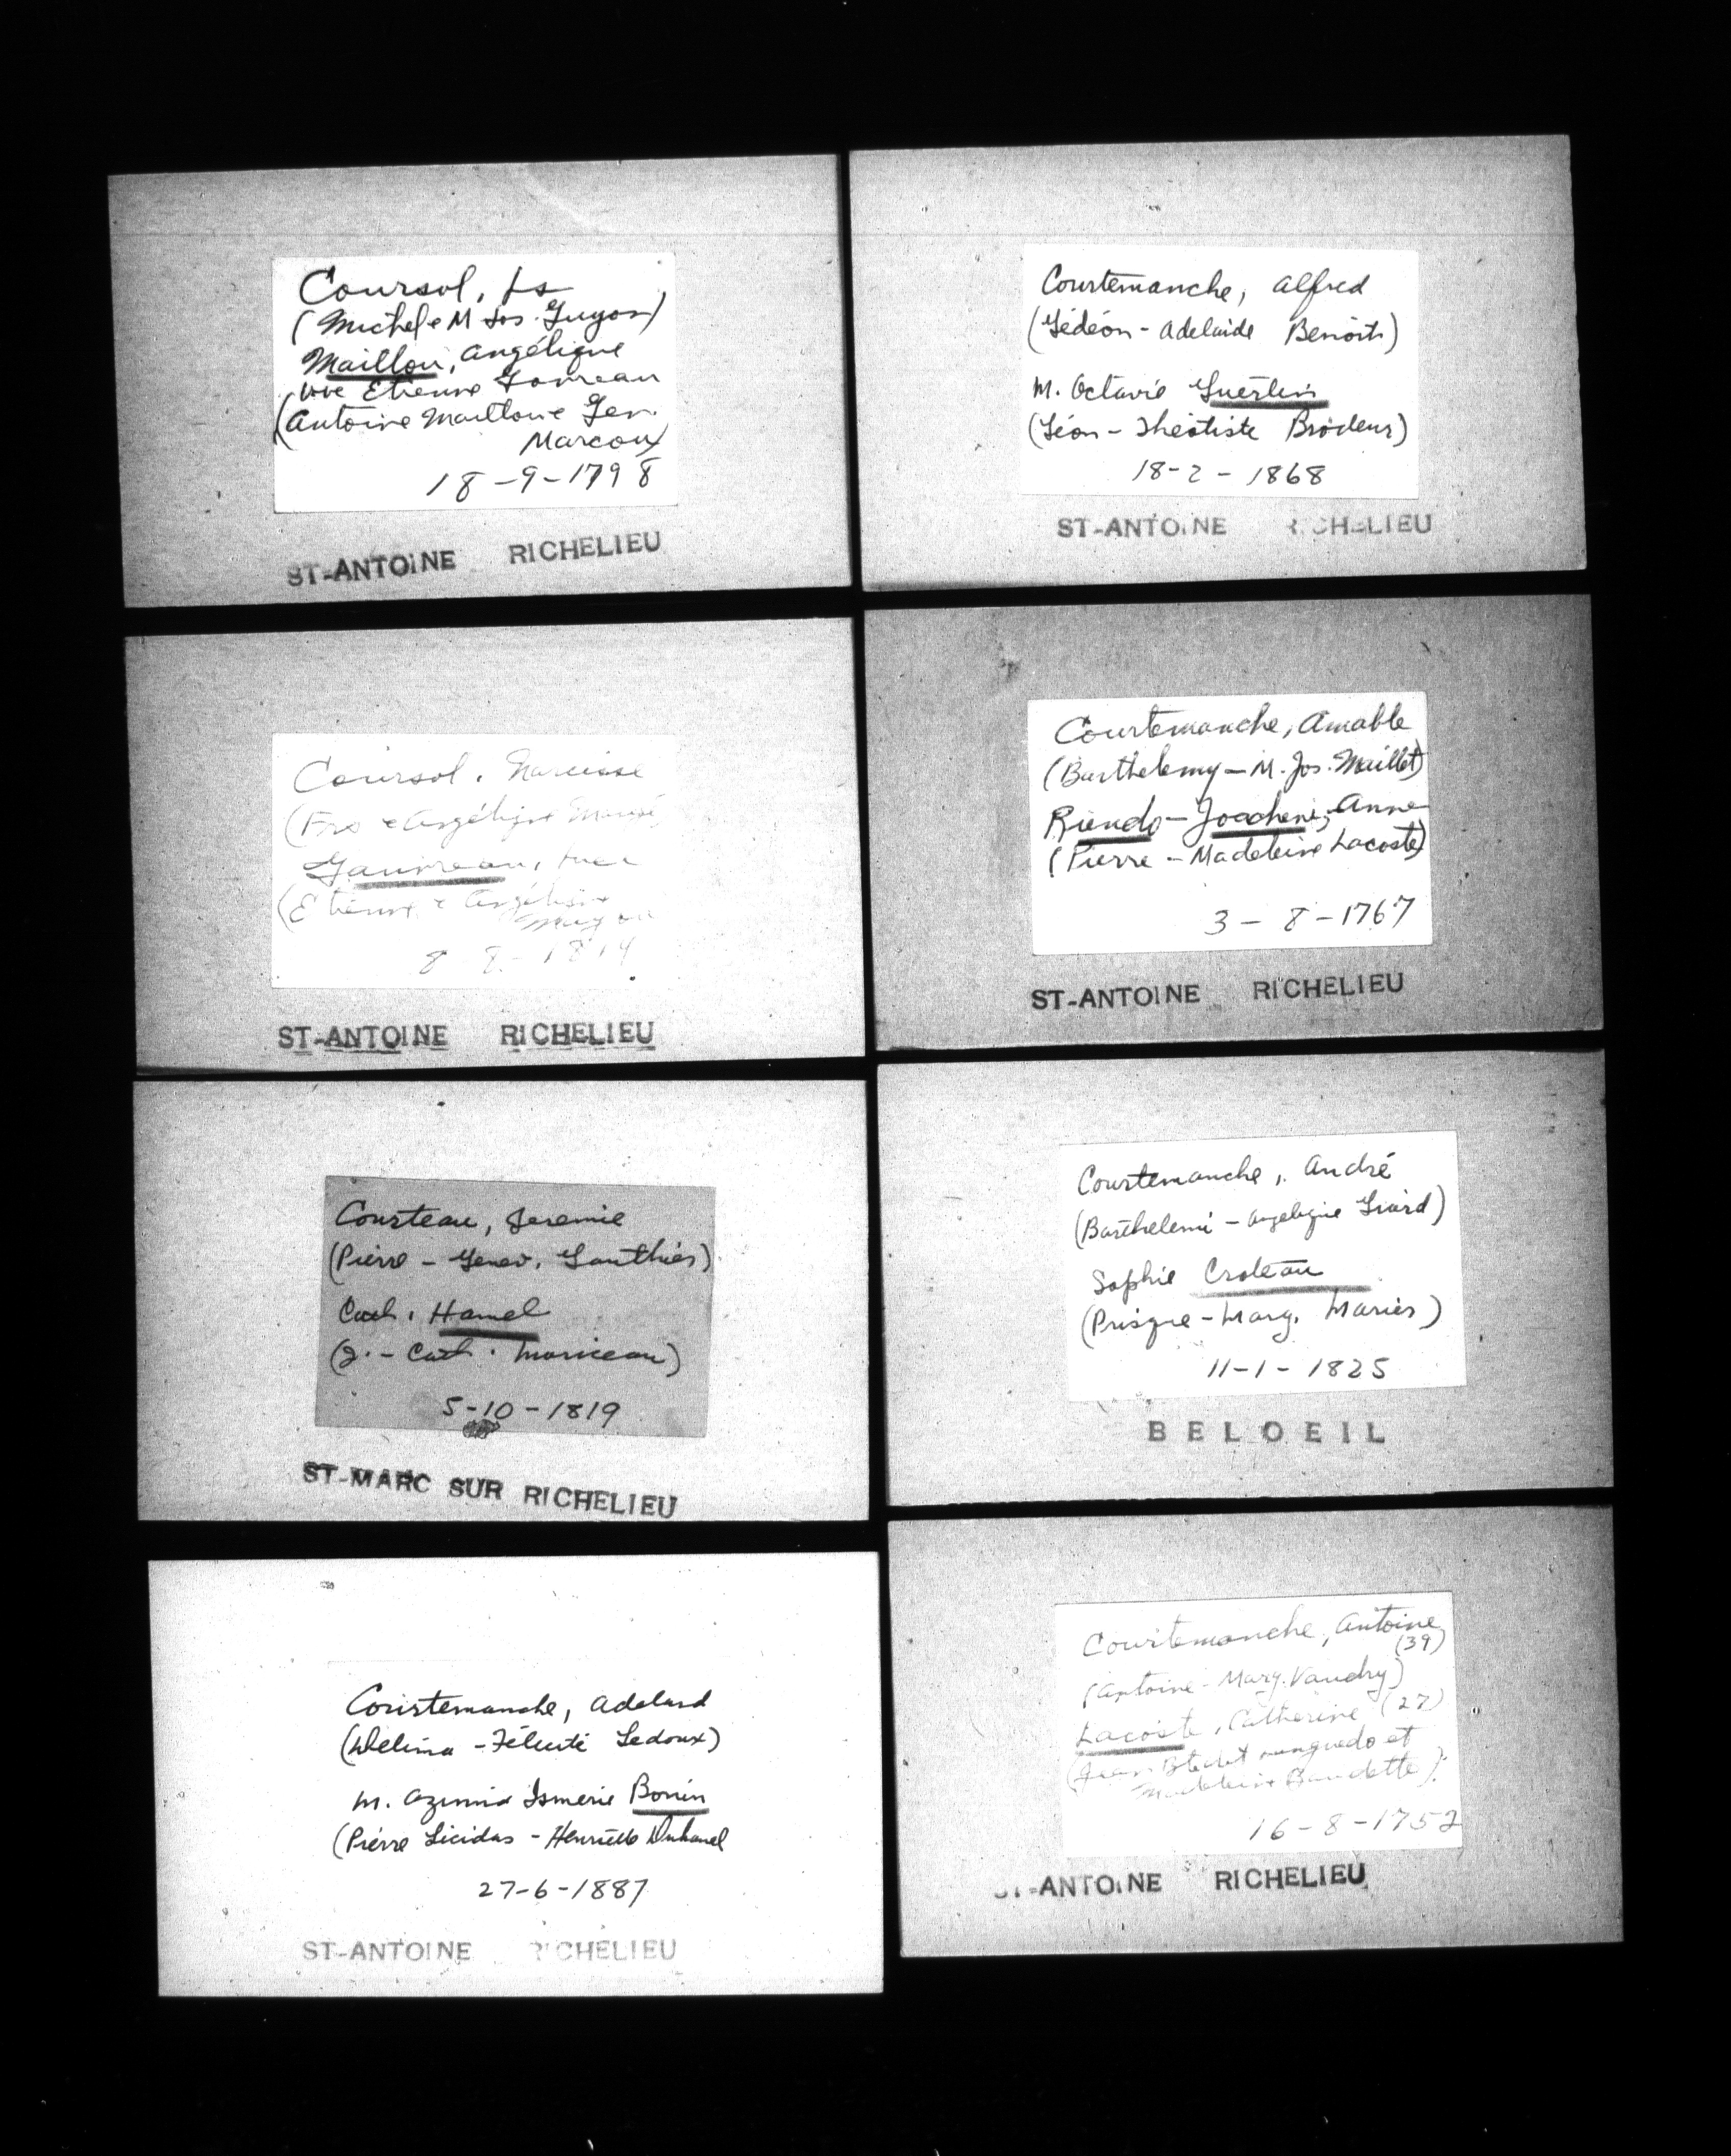 Coursol, Ls
(Michel e M Jos. Guyon)
Maillou, Angélique
vve Etienne Gauvreau
(Antoine Maillou e Gen.
Marcoux)
18-9-1798
ST-ANTOINE RICHELIEU
Coursol, Narcisse
(Frs e Angélique
Gauvreau, Luce
(Etienne e Angélique
8-8-1814
ST-ANTOINE RICHELIEU
Courteau, Jeremie
(Pierre - Genev. Gauthier)
Cath. Hamel
(J. - Cath. Moriceau)
5-10-1819
ST-MARC SUR RICHELIEU
Courtemanche, Adelard
(Délima - Félicité Ledoux)
M. Azimia Ismerie Bonin
(Pierre Licidas - Henriette Duhamel
27-6-1887
ST-ANTOINE RICHELIEU
Courtemanche, Alfred
(Gédéon - Adelaide Benoit)
M. Octavie Guertin
(Léon - Théotiste Brodeur)
18-2-1868
ST-ANTOINE RICHELIEU
Courtemanche, Amable
(Barthelemy - M. Jos. Maillet)
Riendo - Joachim, Anne
(Pierre - Madeleine Lacoste)
3-8-1767
ST-ANTOINE RICHELIEU
Courtemanche, André
(Barthelemi - Angelique Giard)
Sophie Croteau
(Prisque - Marg. Marier)
11-1-1825
BELOEIL
Courtemanche, Antoine
(39)
(Antoine - Marg. Vaudry)
Lacoste, Catherine (27)
(Jean Bte et
Madeleine Baudette)
16-8-1752
ST-ANTOINE RICHELIEU